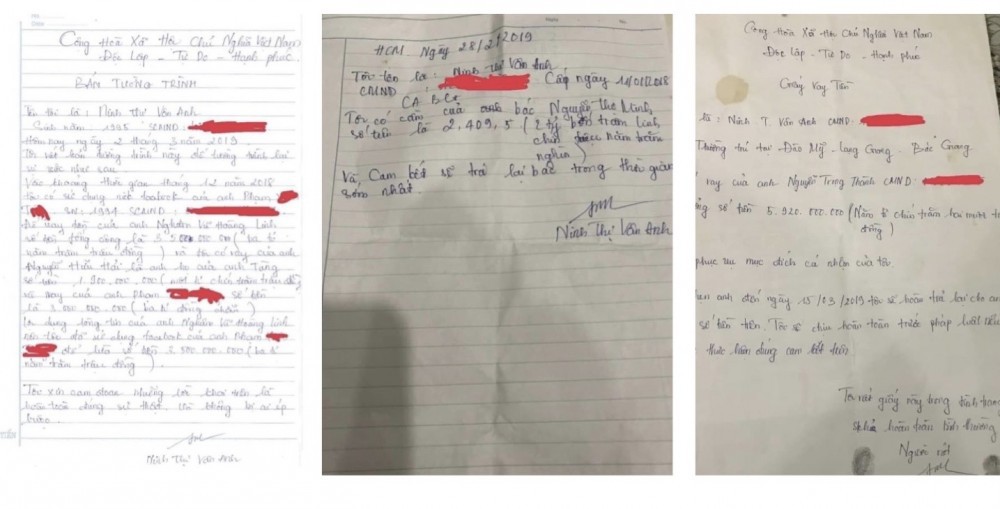 Cộng Hoà Xã Hội Chủ Nghĩa Việt Nam
Độc Lập - Tự Do - Hạnh phúc
BẢN TƯỜNG TRÌNH
Tôi tên là: Ninh Thị Vân Anh
Sinh năm 1995 SCMND:
Hôm nay ngày 2 tháng 3 năm 2019
Tôi viết bản tường trình này để tường trình lại
về việc như sau
Vào khoảng thời gian tháng 12 năm 2018
tôi có sử dụng facebook của anh Phạm
SN: 1994 SCMND:
để vay tiền của anh Nghiêm Vũ Hoàng Linh
số tiền tổng cộng là 3.500.000.000 (ba tỉ
năm trăm triệu đồng) và tôi có vay của anh
Nguyễn Hữu Hải là anh họ của anh Tăng
số tiền 1.900.000.000 (một tỉ chín trăm triệu
và vay của anh Phạm số tiền
là 3.000.000.000 (ba tỉ đồng chẵn)
Lợi dụng lòng tin của anh Nghiêm Vũ Hoàng Linh
nên tôi đã sử dụng facebook của anh Phạm
để lừa số tiền 3.500.000.000 (ba tỉ
năm trăm triệu đồng)
Tôi xin cam đoan những lời khai trên là
hoàn toàn đúng sự thật và không bị ai ép
buộc.
Ninh Thị Vân Anh
HCM, Ngày 28/2/2019
Tôi tên là: Ninh Thị Vân Anh
CMND: Cấp ngày 11/01/2018
CA BG
Tôi có cầm của anh bác Nguyễn Thọ Ninh
số tiền là 2,409,5 (2 tỷ bốn trăm linh
chín triệu năm trăm
nghìn)
Và cam kết sẽ trả lại bác trong thời gian
sớm nhất.
Ninh Thị Vân Anh
Cộng Hoà Xã Hội Chủ Nghĩa Việt Nam
Độc Lập - Tự Do - Hạnh phúc
Giấy Vay Tiền
là: Ninh T. Vân Anh CMND:
Thường trú tại Đào Mỹ - Lạng Giang - Bắc Giang
vay của anh Nguyễn Trọng Thành CMND:
số tiền 5.920.000.000 (Năm tỉ chín trăm hai mươi
đồng)
phục vụ mục đích cá nhân của tôi.
anh đến ngày 15/03/2019 tôi sẽ hoàn trả lại cho anh
số tiền trên. Tôi sẽ chịu hoàn toàn trước pháp luật
thực hiện đúng cam kết trên.
Tôi viết giấy này trong tình trạng
hoàn toàn bình thường
Người viết